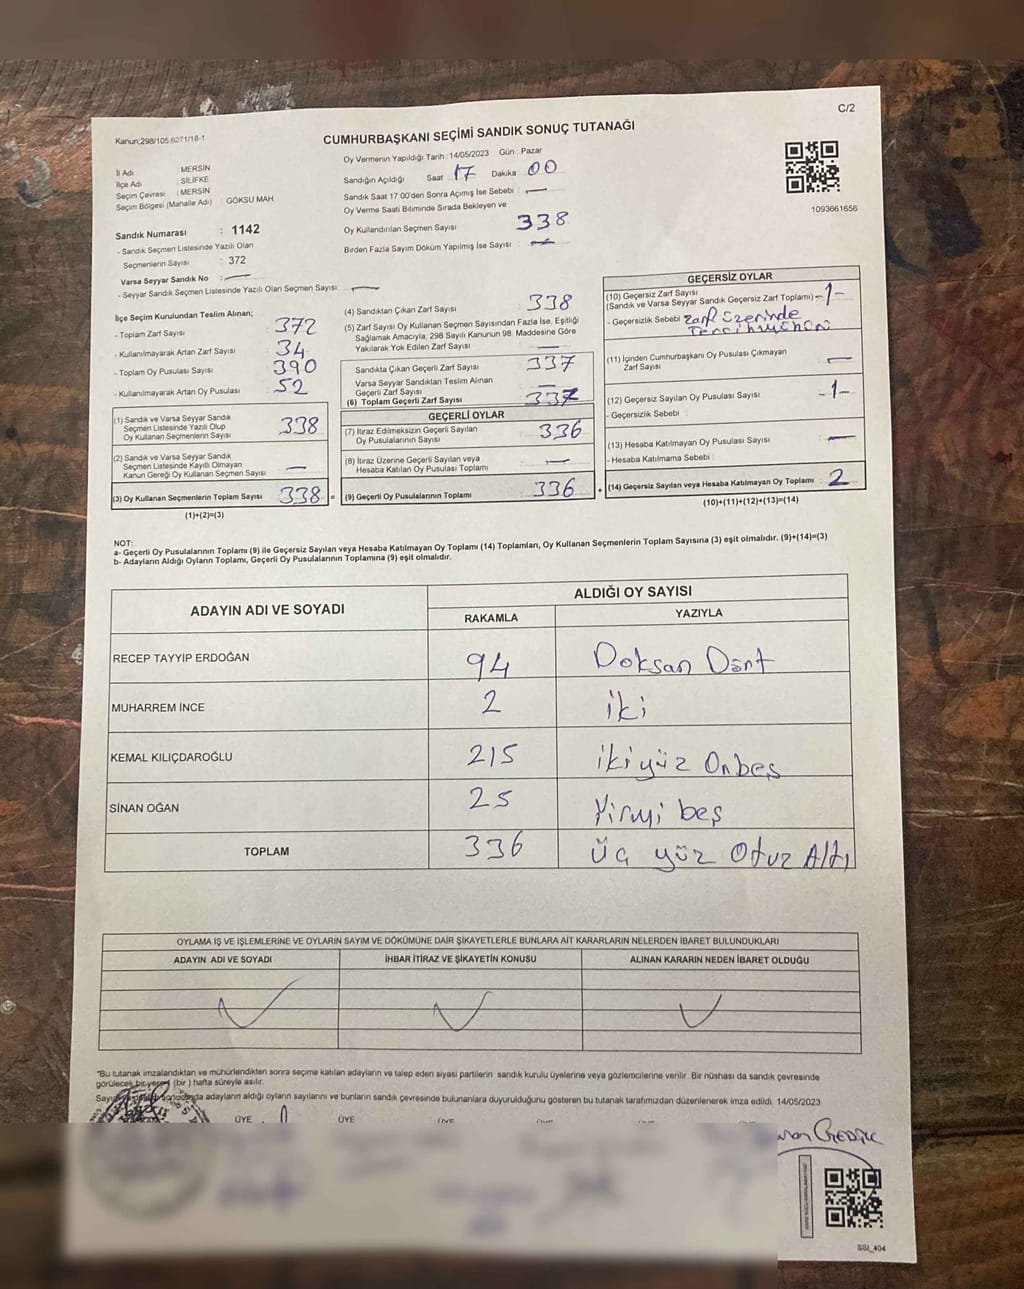 C/2
Kanun;298/105,6271/18-1
CUMHURBAŞKANI SEÇİMİ SANDIK SONUÇ TUTANAĞI
İl Adı MERSİN
İlçe Adı : SİLİFKE
Seçim Çevresi : MERSİN
Seçim Bölgesi (Mahalle Adı) GÖKSU MAH.
Sandık Numarası : 1142
- Sandık Seçmen Listesinde Yazılı Olan
Seçmenlerin Sayısı : 372
Varsa Seyyar Sandık No : —
- Seyyar Sandık Seçmen Listesinde Yazılı Olan Seçmen Sayısı: —
Oy Vermenin Yapıldığı Tarih :14/05/2023 Gün : Pazar
Sandığın Açıldığı Saat : 17 Dakika : 00
Sandık Saat 17:00'den Sonra Açımış İse Sebebi : —
Oy Verme Saati Bitiminde Sırada Bekleyen ve
Oy Kullandırılan Seçmen Sayısı : 338
Birden Fazla Sayım Döküm Yapılmış İse Sayısı : —
1093661656
İlçe Seçim Kurulundan Teslim Alınan;
- Toplam Zarf Sayısı : 372
- Kullanılmayarak Artan Zarf Sayısı : 34
- Toplam Oy Pusulası Sayısı : 390
- Kullanılmayarak Artan Oy Pusulası : 52
(1) Sandık ve Varsa Seyyar Sandık
Seçmen Listesinde Yazılı Olup
Oy Kullanan Seçmenlerin Sayısı : 338
(2) Sandık ve Varsa Seyyar Sandık
Seçmen Listesinde Kayıtlı Olmayan
Kanun Gereği Oy Kullanan Seçmen Sayısı : —
(3) Oy Kullanan Seçmenlerin Toplam Sayısı : 338 =
(1)+(2)=(3)
(4) Sandıktan Çıkan Zarf Sayısı : 338
(5) Zarf Sayısı Oy Kullanan Seçmen Sayısından Fazla İse, Eşitliği
Sağlamak Amacıyla, 298 Sayılı Kanunun 98. Maddesine Göre
Yakılarak Yok Edilen Zarf Sayısı : —
Sandıkta Çıkan Geçerli Zarf Sayısı : 337
Varsa Seyyar Sandıktan Teslim Alınan
Geçerli Zarf Sayısı : —
(6) Toplam Geçerli Zarf Sayısı : 337
GEÇERLİ OYLAR
(7) İtiraz Edilmeksizin Geçerli Sayılan
Oy Pusulalarının Sayısı : 336
(8) İtiraz Üzerine Geçerli Sayılan veya
Hesaba Katılan Oy Pusulası Toplamı : —
(9) Geçerli Oy Pusulalarının Toplamı : 336 +
GEÇERSİZ OYLAR
(10) Geçersiz Zarf Sayısı
(Sandık ve Varsa Seyyar Sandık Geçersiz Zarf Toplamı) -1-
- Geçersizlik Sebebi : Zarf Üzerinde
Tercih Mührü
(11) İçinden Cumhurbaşkanı Oy Pusulası Çıkmayan
Zarf Sayısı : —
(12) Geçersiz Sayılan Oy Pusulası Sayısı : -1-
- Geçersizlik Sebebi :
(13) Hesaba Katılmayan Oy Pusulası Sayısı : —
- Hesaba Katılmama Sebebi :
(14) Geçersiz Sayılan veya Hesaba Katılmayan Oy Toplamı : 2
(10)+(11)+(12)+(13)=(14)
NOT:
a- Geçerli Oy Pusulalarının Toplamı (9) ile Geçersiz Sayılan veya Hesaba Katılmayan Oy Toplamı (14) Toplamları, Oy Kullanan Seçmenlerin Toplam Sayısına (3) eşit olmalıdır. (9)+(14)=(3)
b- Adayların Aldığı Oyların Toplamı, Geçerli Oy Pusulalarının Toplamına (9) eşit olmalıdır.
ADAYIN ADI VE SOYADI ALDIĞI OY SAYISI
RAKAMLA YAZIYLA
RECEP TAYYİP ERDOĞAN 94 Doksan Dört
MUHARREM İNCE 2 iki
KEMAL KILIÇDAROĞLU 215 ikiyüz Onbeş
SİNAN OĞAN 25 Yirmi beş
TOPLAM 336 Üç yüz Otuz Altı
OYLAMA İŞ VE İŞLEMLERİNE VE OYLARIN SAYIM VE DÖKÜMÜNE DAİR ŞİKAYETLERLE BUNLARA AİT KARARLARIN NELERDEN İBARET BULUNDUKLARI
ADAYIN ADI VE SOYADI İHBAR İTİRAZ VE ŞİKAYETİN KONUSU ALINAN KARARIN NEDEN İBARET OLDUĞU
*Bu tutanak imzalandıktan ve mühürlendikten sonra seçime katılan adayların ve talep eden siyasi partilerin sandık kurulu üyelerine veya gözlemcilerine verilir. Bir nüshası da sandık çevresinde
görülecek bir yere (bir ) hafta süreyle asılır.
sonucunda adayların aldığı oyların sayılarını ve bunların sandık çevresinde bulunanlara duyurulduğunu gösteren bu tutanak tarafımızdan düzenlenerek imza edildi. 14/05/2023
ÜYE ÜYE ÜYE
SSI_404